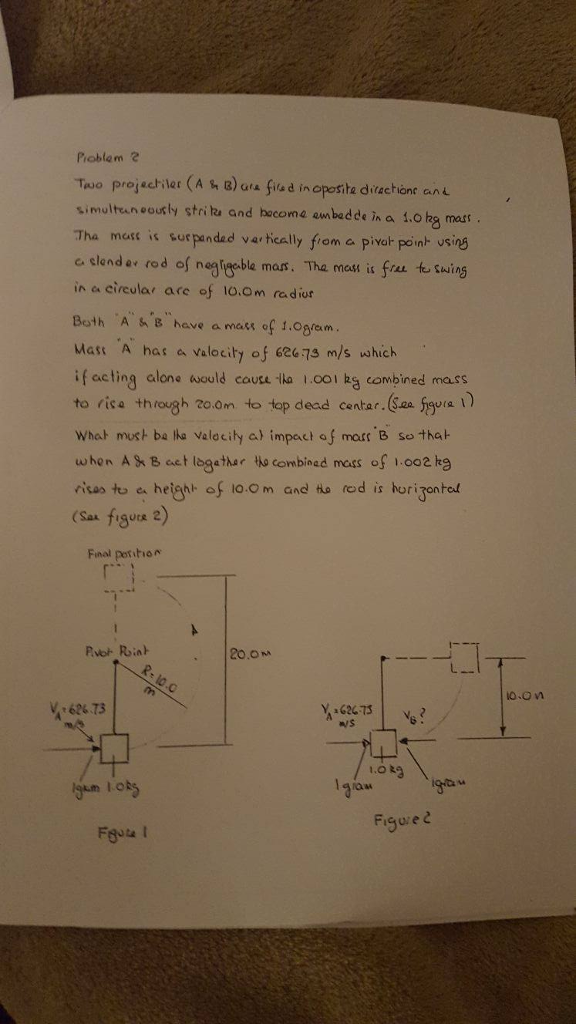 Problem 2
Two projectiles (A & B) are fired in oposite directions and
simultaneously strike and become embedde in a 1.0 kg mass.
The mass is suspended vertically from a pivot point using
a slender rod of negligable mass. The mass is free to swing
in a circular arc of 10.0m radius
Both "A" & "B" have a mass of 1.0gram.
Mass "A" has a velocity of 626.73 m/s which
if acting alone would cause the 1.001 kg combined mass
to rise through 20.0m to top dead center. (See figure 1)
What must be the velocity at impact of mass "B" so that
when A & B act together the combined mass of 1.002kg
rises to a height of 10.0m and the rod is horizontal
(See figure 2)
Final position
Pivot Point
R=10.0
m
20.0m
VA=626.73
m/s
1gram 1.0kg
Figure 1
VA=626.73
m/s
VB?
10.0m
1.0kg
1gram
1gram
Figure 2